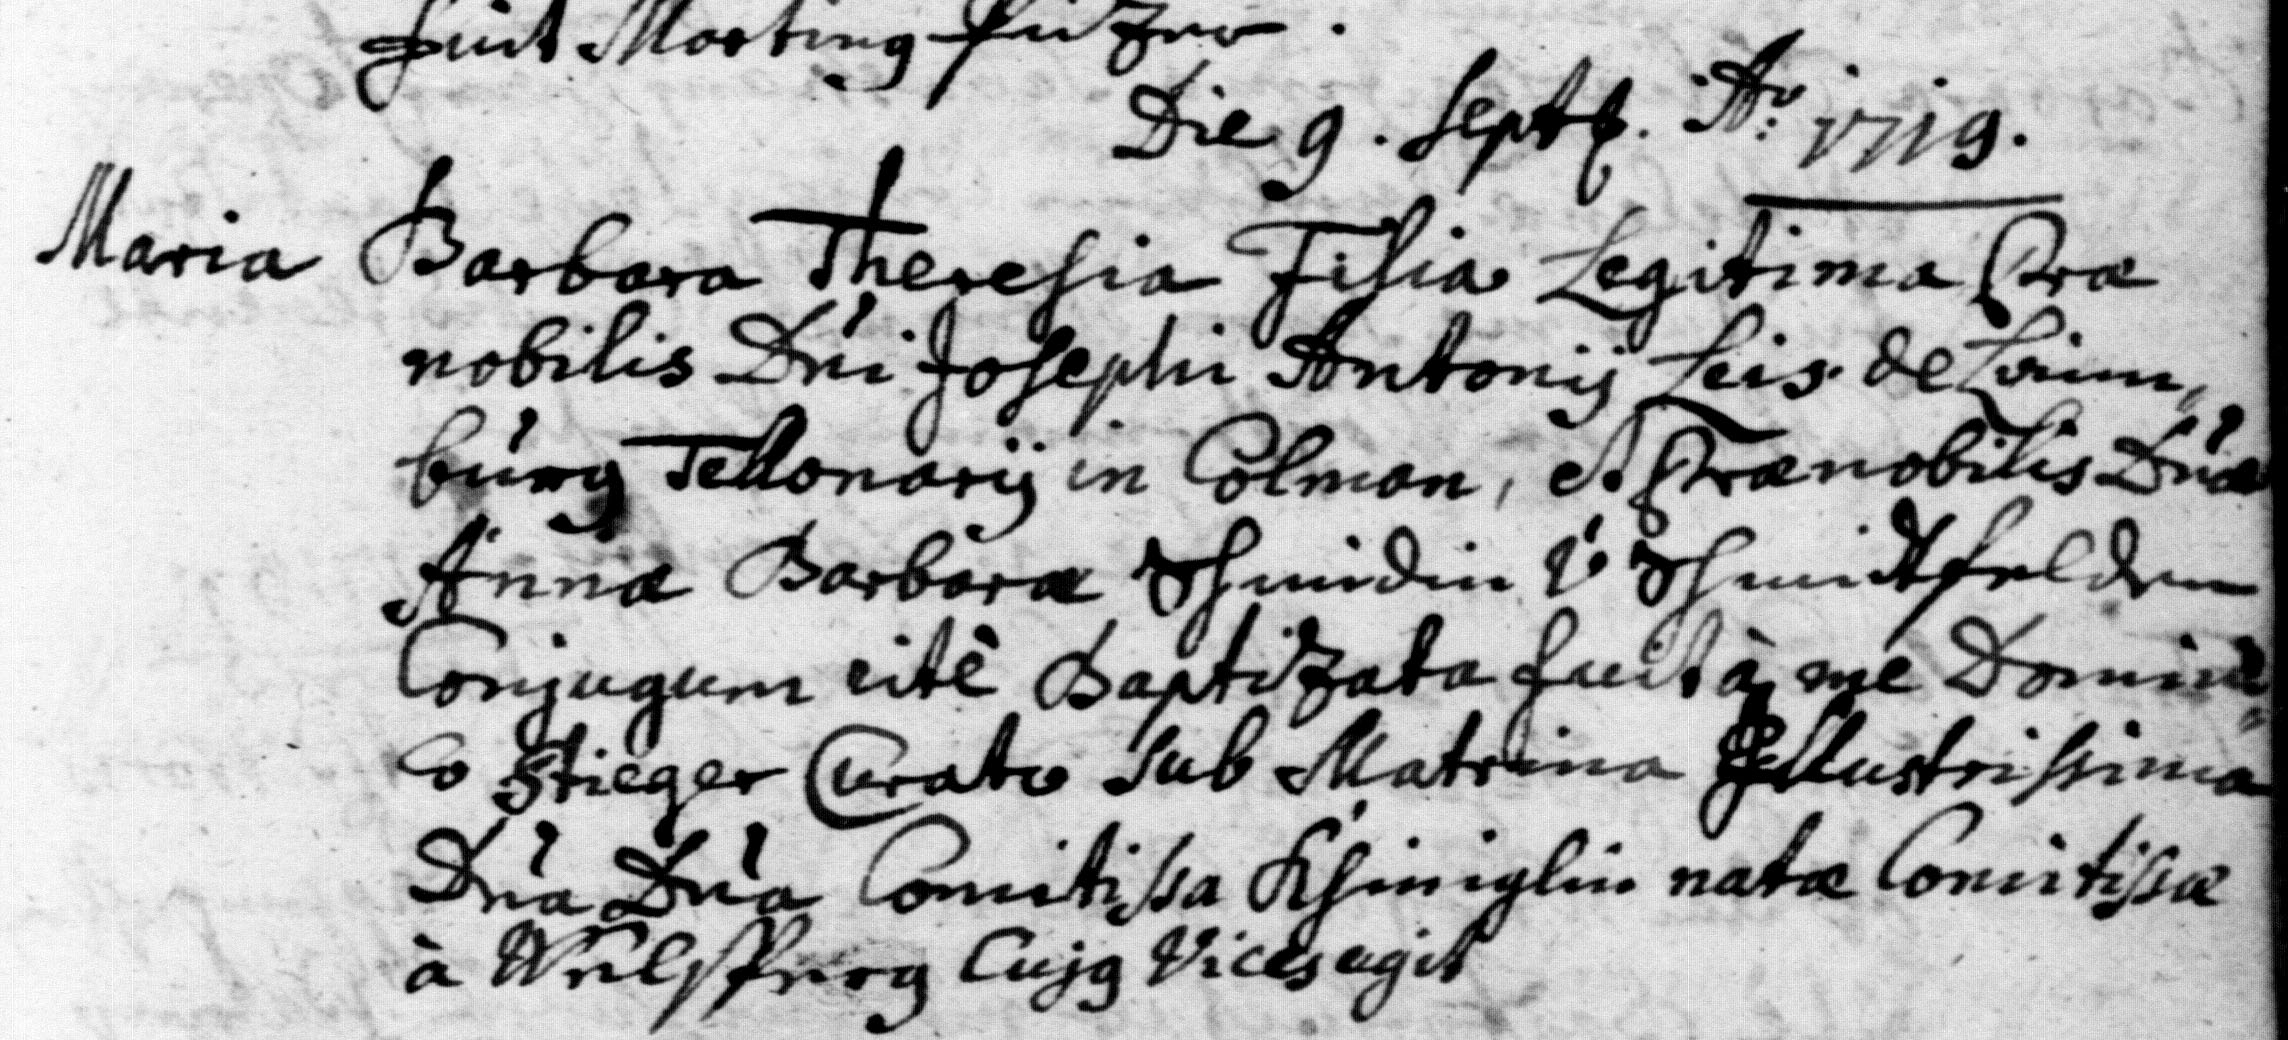 fuit Martinus
Die 9. Septb. Aō: 1719.
Maria Barbara Theresia Filia Legitima Præ
nobilis Dni Josephi Antonij Leis de Leim,,
burg Tellonarij in Colman, et Prænobilis Dnæ
Annæ Barbaræ Shmidin v. Shmidtfelden
Conjugum ritè Baptizata fuit à me Domini,,
co Stieger Curato sub Matrina Illustrissima
Dna Dna Comitissa Khiniglin natæ Comitissæ
à Wolfsturn Cujus Vices egit